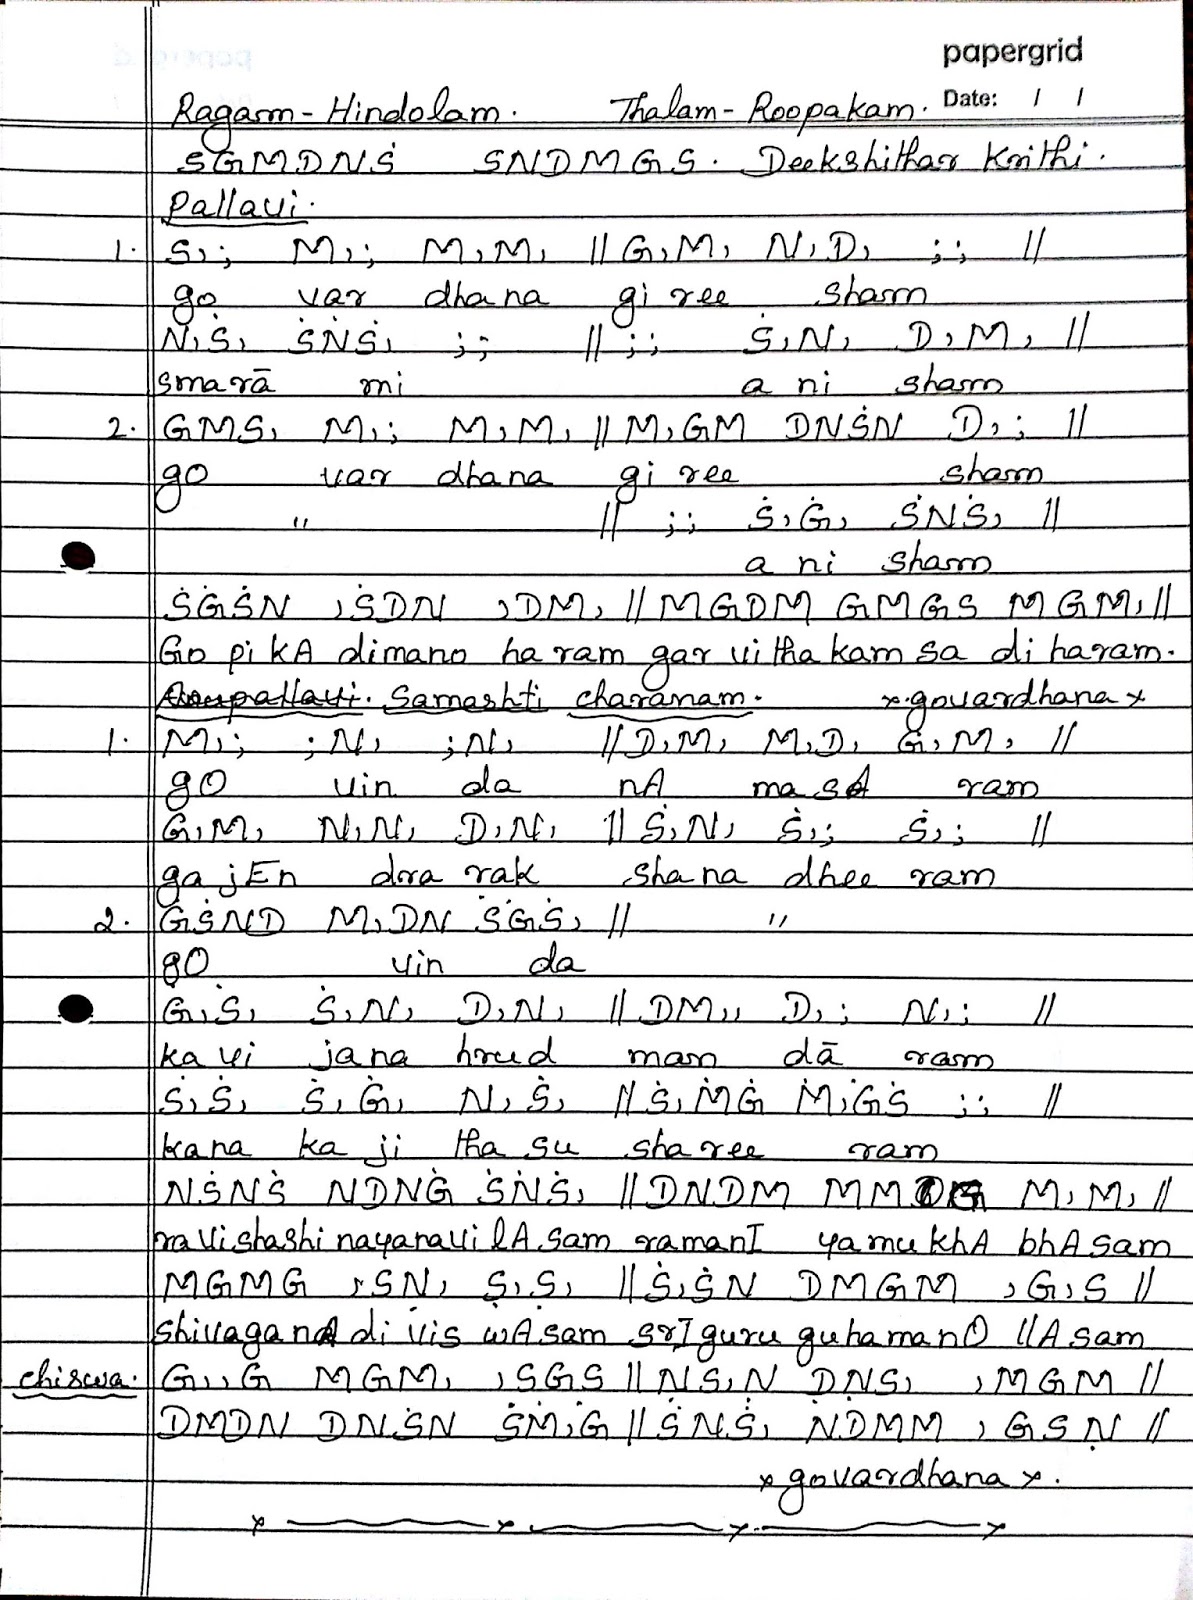 papergrid
Ragam - Hindolam. Thalam - Roopakam. Date: / /
SGMDNṠ SNDMGS. Deekshithar Krithi.
Pallavi.
1. S,; M,; M,M, || G,M, N,D, ;; ||
go var dhana gi ree sham
N,Ṡ, ṠNṠ, ;; || ;; Ṡ,N, D,M, ||
smarā mi a ni sham
2. GMS, M,; M,M, || M,GM DNṠN D,; ||
go var dhana gi ree sham
" || ;; Ṡ,Ġ, ṠNṠ, ||
a ni sham
ṠĠṠN ,ṠDN ,DM, || MGDM GMGS MGM, ||
Go pi kA dimano ha ram gar vitha kam sa di haram.
Anupallavi. Samashti charanam. x govardhana x
1. M,; ;N, ;N, || D,M, M,D, G,M, ||
gO vin da nA ma sA ram
G,M, N,N, D,N, || Ṡ,N, Ṡ,; Ṡ,; ||
ga jEn dra rak shana dhee ram
2. ĠṠND M,DN ṠĠṠ, || "
gO vin da
Ġ,Ṡ, Ṡ,N, D,N, || DM,, D,; N,; ||
ka vi jana hrud man dā ram
Ṡ,Ṡ, Ṡ,Ġ, N,Ṡ, || Ṡ,ṀĠ Ṁ,ĠṠ ;; ||
kana ka ji tha su sha ree ram
NṠNṠ NDNĠ ṠNṠ, || DNDM MMDG M,M, ||
ravishashi nayanavi lA sam ramanI yamu khA bhA sam
MGMG ,SN, S,S, || Ṡ,ṠN DMGM ,G,S ||
shivaganA di vis wA sam srI guru guhamanO llA sam
chiswa. G,,G MGM, ,SGS || ṆS,Ṇ ḌṆS, ,MGM ||
DMDN DNṠN ṠṀ,Ġ || ṠNṠ, NDMM ,GSṆ ||
x govardhana x.